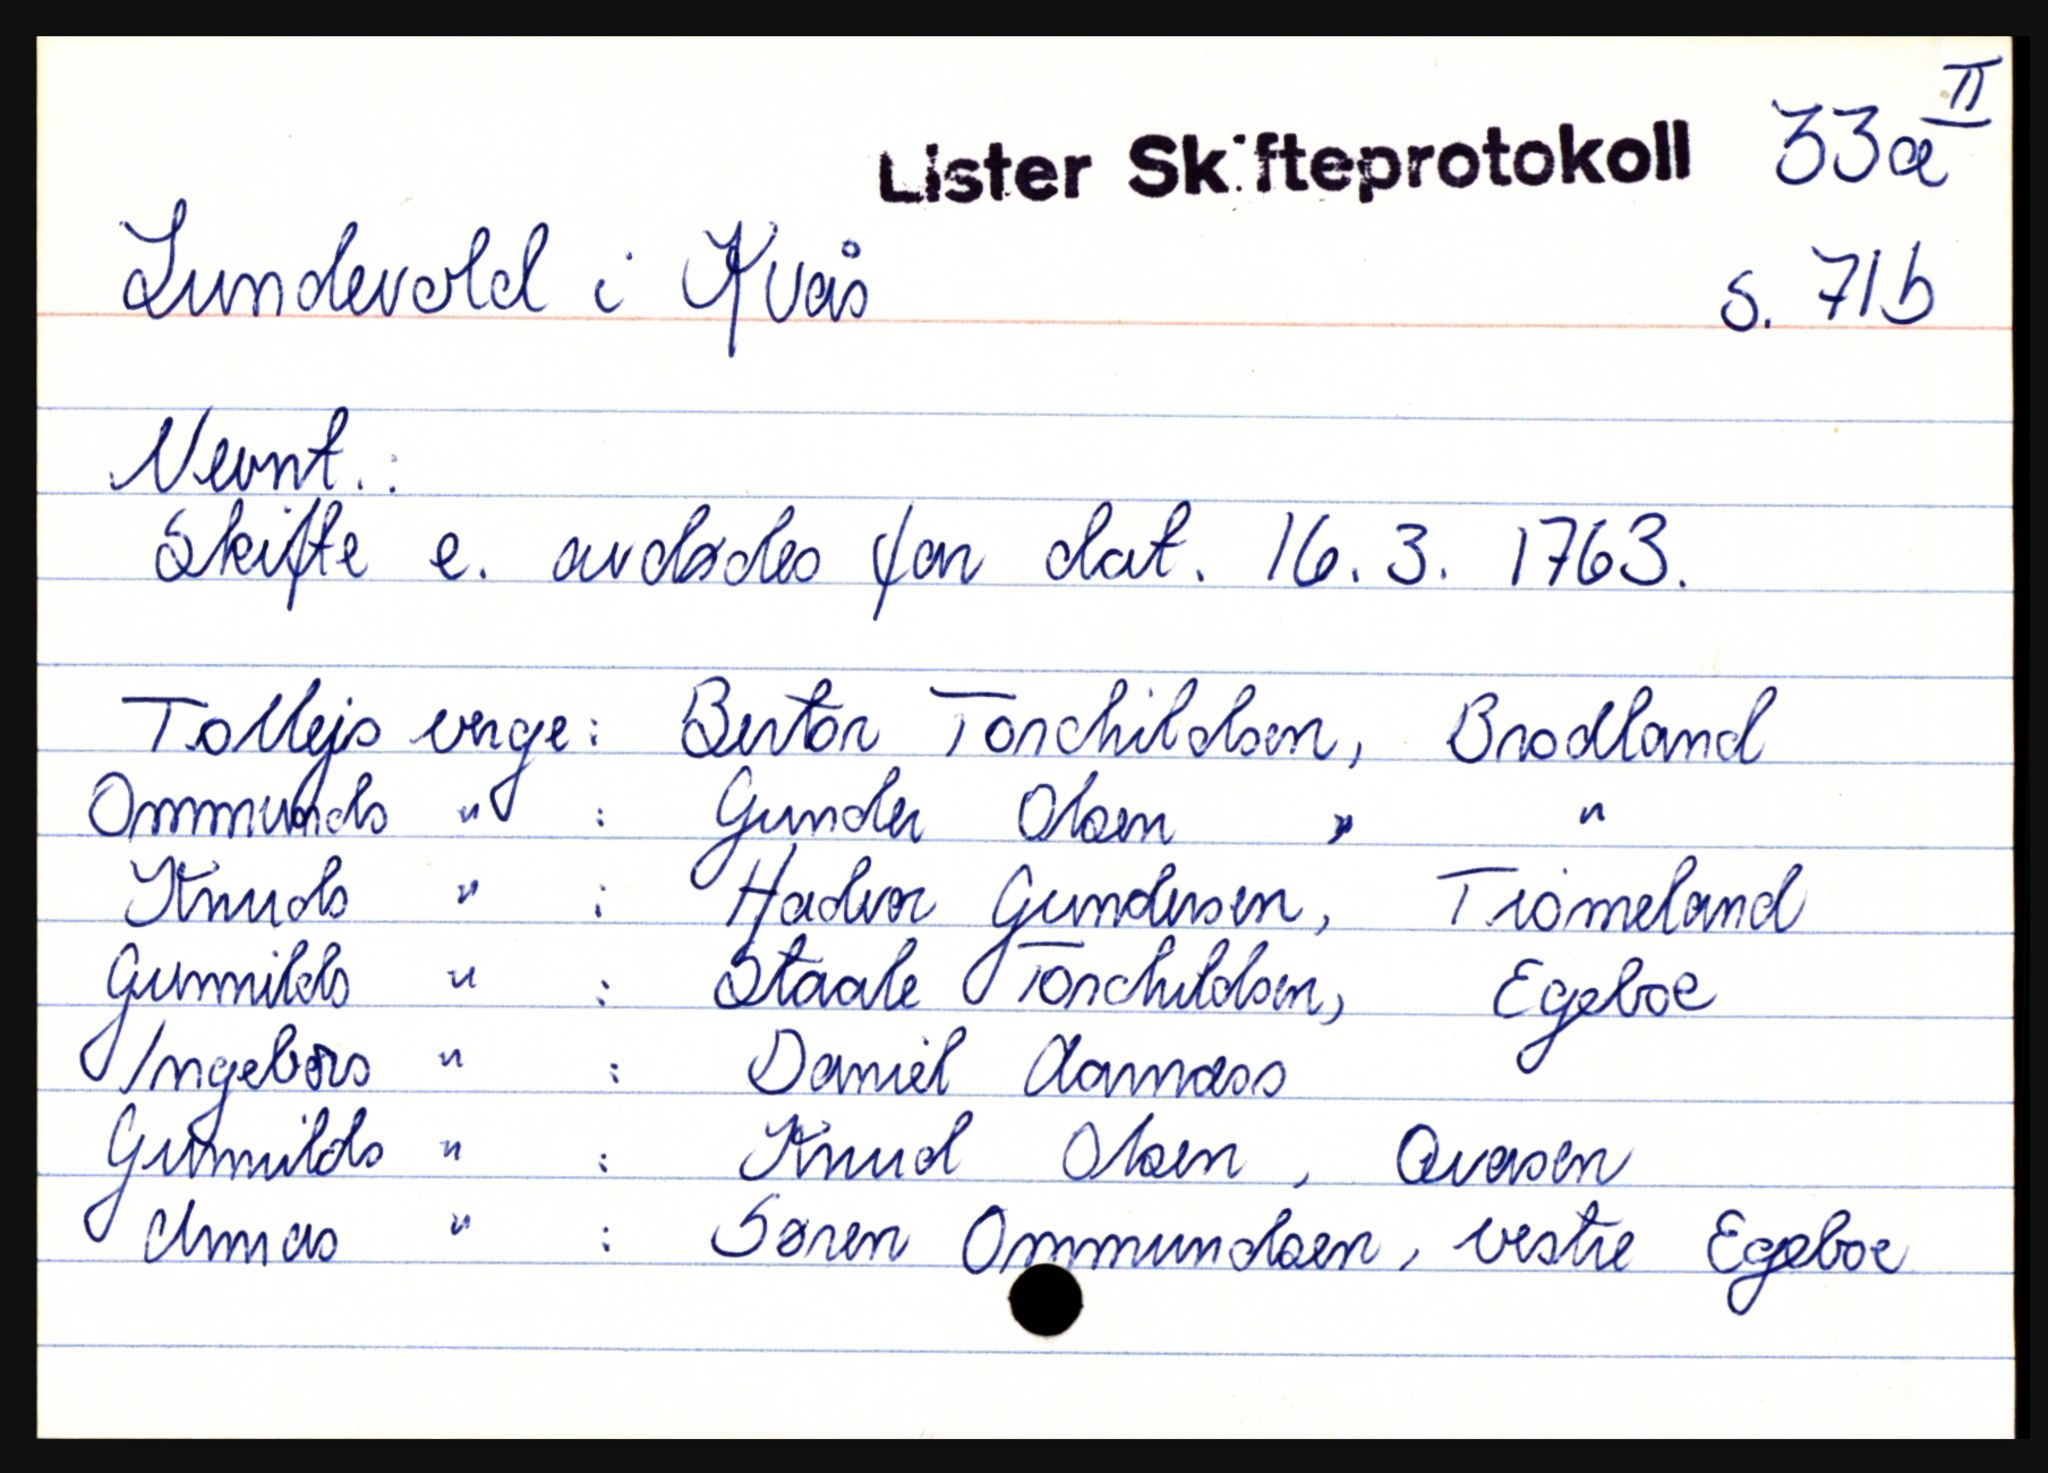 Lister Skifteprotokoll 33a II
Lundevold i Kvås s. 71b
Nevnt.:
Skifte e. avdødes far dat. 16.3.1763.
Tollejs verge: Bertor Torchildsen, Brodland
Ommunds " : Gunder Olsen " "
Knuds " : Hadvor Gundersen, Tiomeland
Gunnilds " : Staale Torchildsen, Egeboe
Ingebors " : Daniel Aamass
Gunnilds " : Knud Olsen, Qvasen
Annas " : Søren Ommundsen, vestre Egeboe